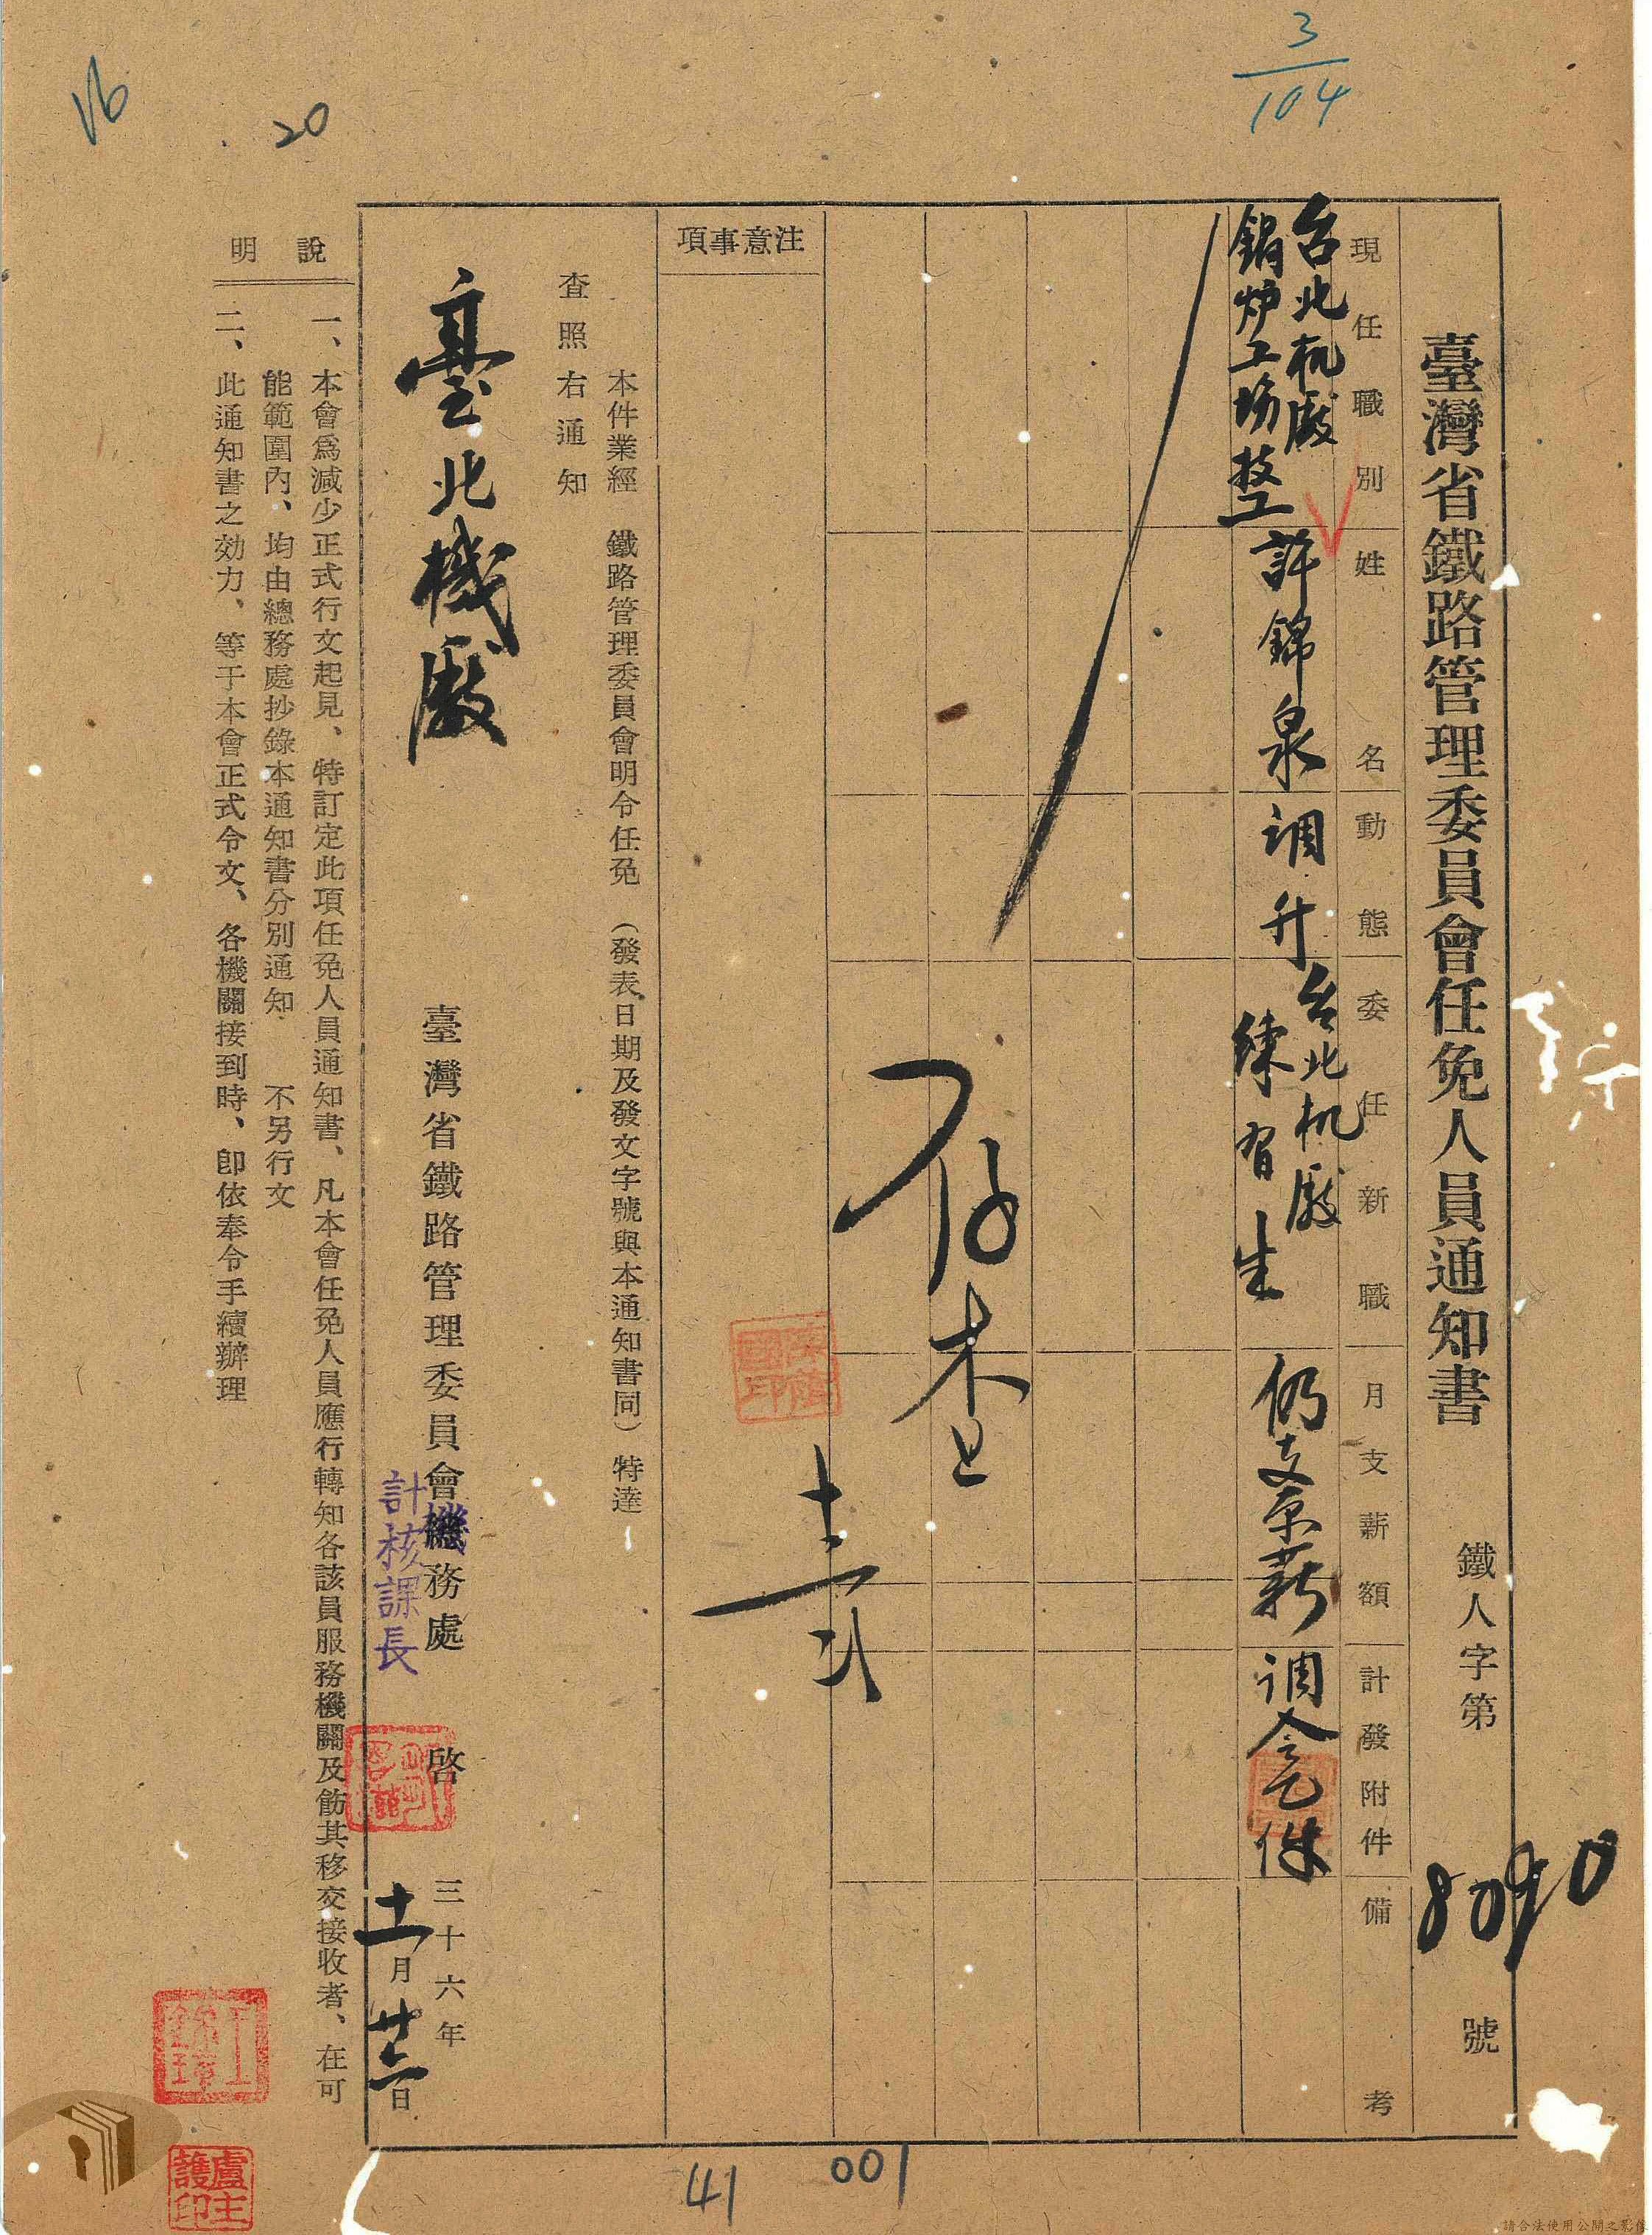 3/104
20
16
臺灣省鐵路管理委員會任免人員通知書
鐵人字第 8090 號
現任職別
姓名
動態
委任新職
月支薪額
計發附件
備考
台北机廠
鍋炉工場技工
許錦泉
调升
台北机廠
練習生
仍支原薪
调令乙件
存查
十一
注意事項
本件業經 鐵路管理委員會明令任免(發表日期及發文字號與本通知書同)特達
查照右通知
臺北機廠
臺灣省鐵路管理委員會機務處 啓
計核課長
三十六年
十一月廿二日
說明
一、本會爲減少正式行文起見、特訂定此項任免人員通知書、凡本會任免人員應行轉知各該員服務機關及飭其移交接收者、在可
能範圍內、均由總務處抄錄本通知書分別通知 不另行文
二、此通知書之効力、等于本會正式令文、各機關接到時、卽依奉令手續辦理
盧主護印
41
001
請合法使用公開之影像